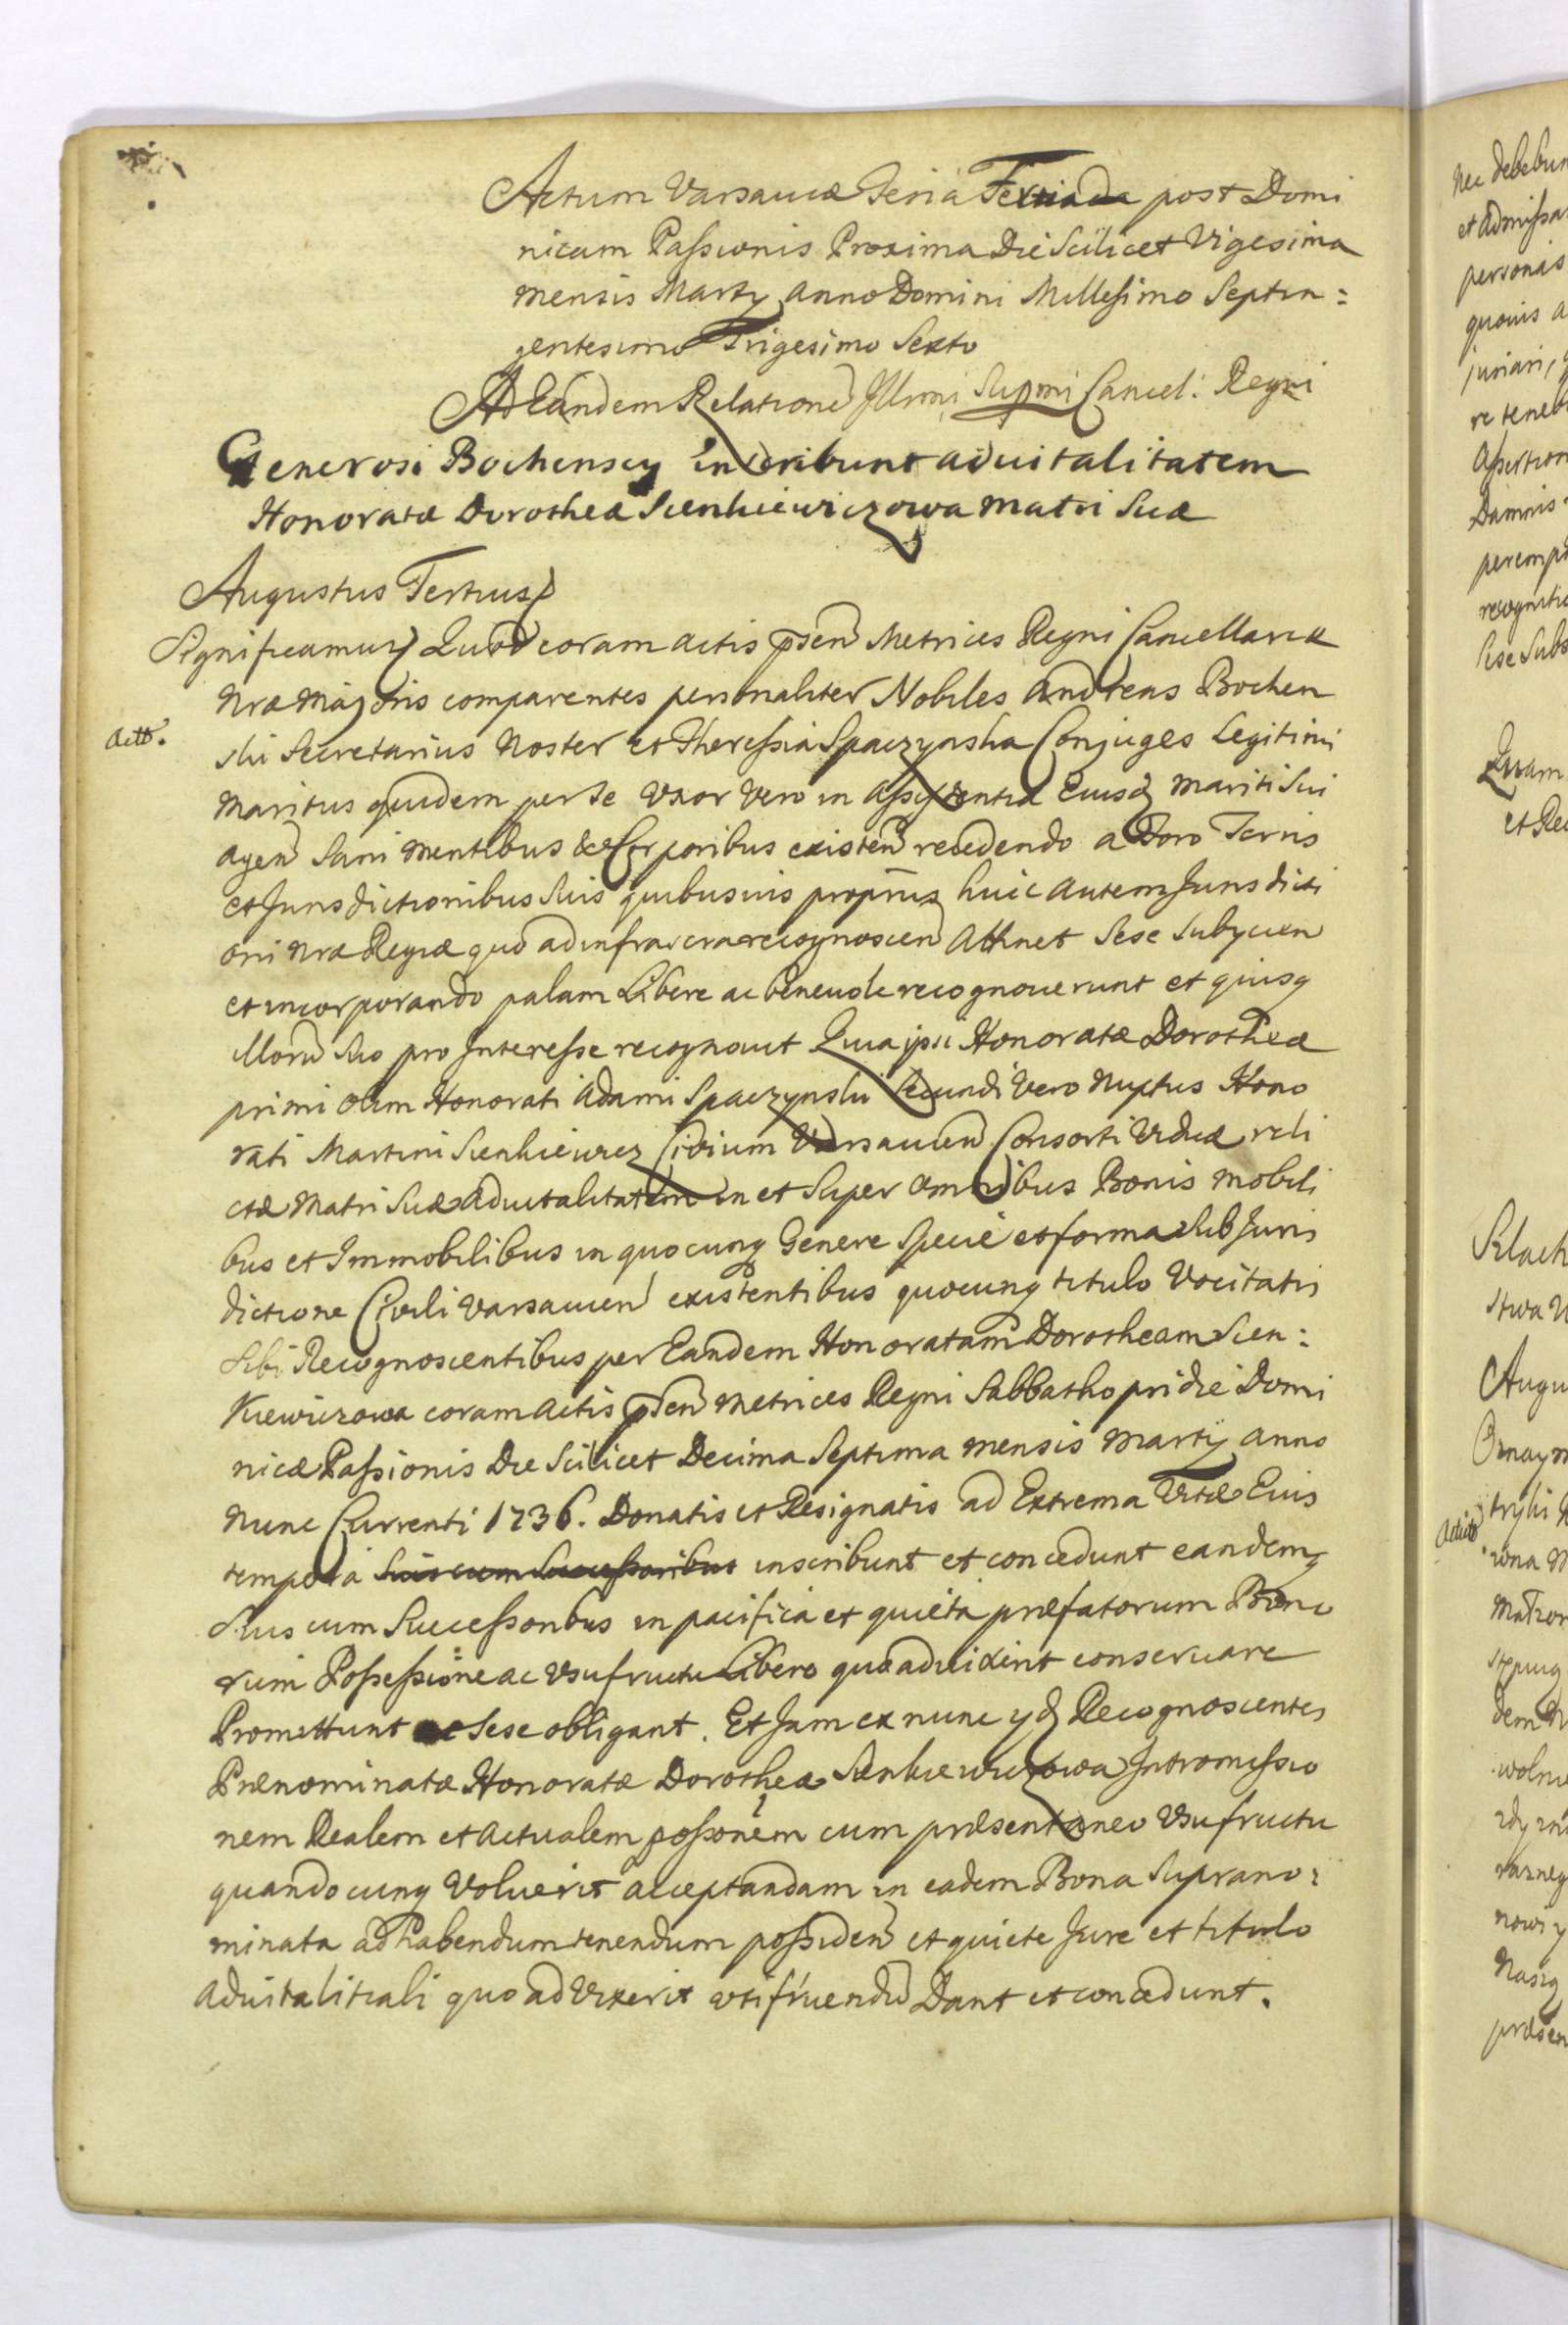 Actum Varsaviæ Feria Tertia post Domi
nicam Passionis Proxima Die Scilicet Vigesima
mensis Martÿ Anno Domini Millesimo Septin=
gentesimo Trigesimo Sexto
Ad Eandem Relationē Illmi Supmi Cancel: Regni
Generosi Bochenscy inscribunt aduitalitatem
Honoratæ Dorotheæ Sienkiewiczowa Matri Suæ
Augustus Tertius
Significamus Quod coram actis psen Metrices Regni Cancellariæ
Nræ Majoris comparentes personaliter Nobiles Andreas Bochen
Actt.
ski Secretarius Noster et Theressia Spaczynska Conjuges Legitimi
Maritus quidem per se Uxor Vero in Assistentia Eiusq Mariti Sui
agen Sani mentibus & Corporibus existen recedendo a Foro Terris
et Jurisdictionibus Suis quibusuis proprijs huic autem Jurisdicti
oni Nræ Regiæ quo ad infrascra recognoscen Attinet Sese Subÿcien
et incorporando palam Libere ac beneuole recognouerunt et quisq
illorū Suo pro Interesse recognouit Quia ipsi Honoratæ Dorotheæ
primi olim Honorati Adami Spaczynski Secundi Vero Nuptus Hono
rati Martini Sienkiewicz Ciuium Varsauien Consorti Viduæ reli
ctæ Matri Suæ aduitalitatem in et Super omnibus Bonis mobili
bus et Immobilibus in quocunq Genere Specie et forma Sub Juris
dictione Ciuili Varsauien existentibus quocunq titulo Vocitatis
Sibi Recognoscentibus per Eandem Honoratam Dorotheam Sien=
kiewiczowa coram actis psen Metrices Regni Sabbatho pridie Domi
nicæ Passionis Die Scilicet Decima Septima mensis Martÿ anno
nunc Currenti 1736. Donatis et Resignatis ad Extrema Vitæ Eius
tempora Suis cum Successoribus inscribunt et concedunt eandemq
Suis cum Successoribus in pacifica et quieta præfatorum Bono
rum Possessione ac Usufructu Libero quo aduixerit conseruare
Promittunt ac Sese obligant. Et Jam ex nunc ÿdē Recognoscentes
Prænominatæ Honoratæ Dorotheæ Sienkiewiczowa Intromissio
nem Realem et Actualem possonem cum præsentaneo Usufructu
quandocunq Voluerit acceptandam in eadem Bona Suprano=
minata ad habendum tenendum possiden et quiete Jure et titulo
aduitalitiali quo ad Vixerit utifruendū Dant et concedunt.
nec debebun
et admissa
personas
quouis a
juriari,
re teneb
Assertion
Damnis
peremp
recognitio
Sese Subs
Quam
et Re
Szlach
stwa
Augu
Oznaym
Actic
trzki
wna
Małżon
dem
wolni
nowi y
Naszą
præsen